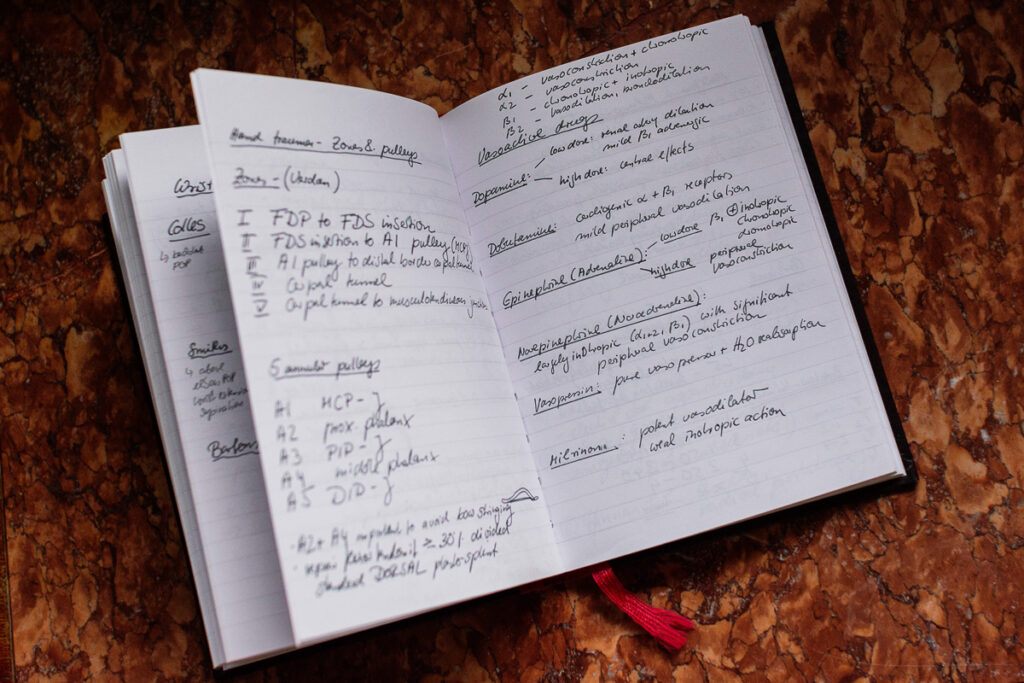 Wrist
Colles
Smiths
Bartons
Hand trauma - Zones & pulleys
Zones - (Verdan)
I FDP to FDS insertion
II FDS insertion to A1 pulley (MCP)
III A1 pulley to distal border carpal tunnel
IV Carpal tunnel
V Carpal tunnel to musculotendinous
5 annular pulleys
A1 MCP - }
A2 prox. phalanx
A3 PID - }
A4 middle phalanx
A5 DID - }
· A2 + A4 important to avoid bow stringing
· repair flexor tendon if ≥ 30% divided
standard DORSAL plaster splint
α1 - vasoconstriction + chronotropic
α2 - vasoconstriction
β1 - chronotropic + inotropic
β2 - vasodilation, bronchodilation
Vasoactive drugs
Dopamine: low dose: renal artery dilation
mild β1 adrenergic
high dose: central effects
Dobutamine: cardiogenic α + β1 receptors
mild peripheral vasodilation
Epinephrine (Adrenaline): low dose β1 ⊕ inotropic
chronotropic
dromotropic
high dose peripheral
vasoconstriction
Norepinephrine (Noradrenaline):
largely inotropic (α1+2, β1) with significant
peripheral vasoconstriction
Vasopressin: pure vasopressor + H2O reabsorption
Milrinone: potent vasodilator
weak inotropic action